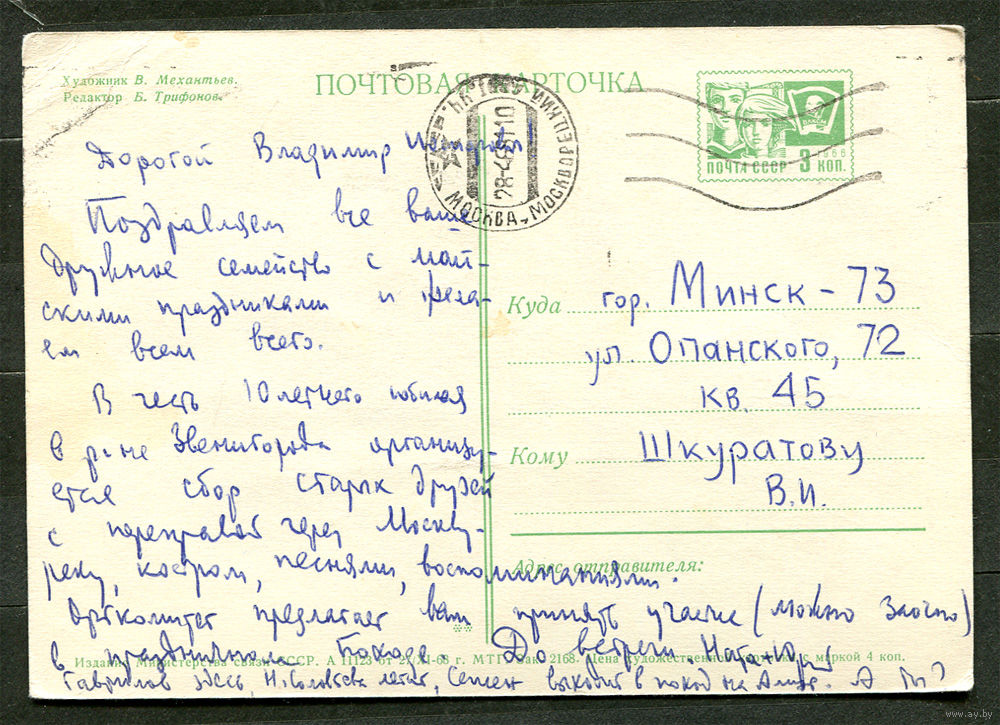 Художник В. Механтьев.
Редактор Б. Трифонов.
ПОЧТОВАЯ КАРТОЧКА
МОСКВА МОСКВОРЕЦКИЙ
ВЛКСМ
1968
ПОЧТА СССР 3 КОП.
Дорогой Владимир
Поздравляем все ваше
дружное семейство с май-
скими праздниками и жела-
ем всем всего.
В честь 10летнего юбилея
в р-не Звенигорода организу-
ется сбор старых друзей
с переправой через Москву-
реку, костром, песнями, воспоминаниями.
Оргкомитет предлагает вам принять участие (можно заочно)
в праздничном До встречи
Гаврилов здесь, Н. Соловьева летит, выходит в поход на А ты?
Куда гор. Минск-73
ул. Опанского, 72
кв. 45
Кому Шкуратову
В.И.
Адрес отправителя:
Издание Министерства связи СССР. 68 г. МТГ Зак. 2168. Цена художественной с маркой 4 коп.
www.ay.by